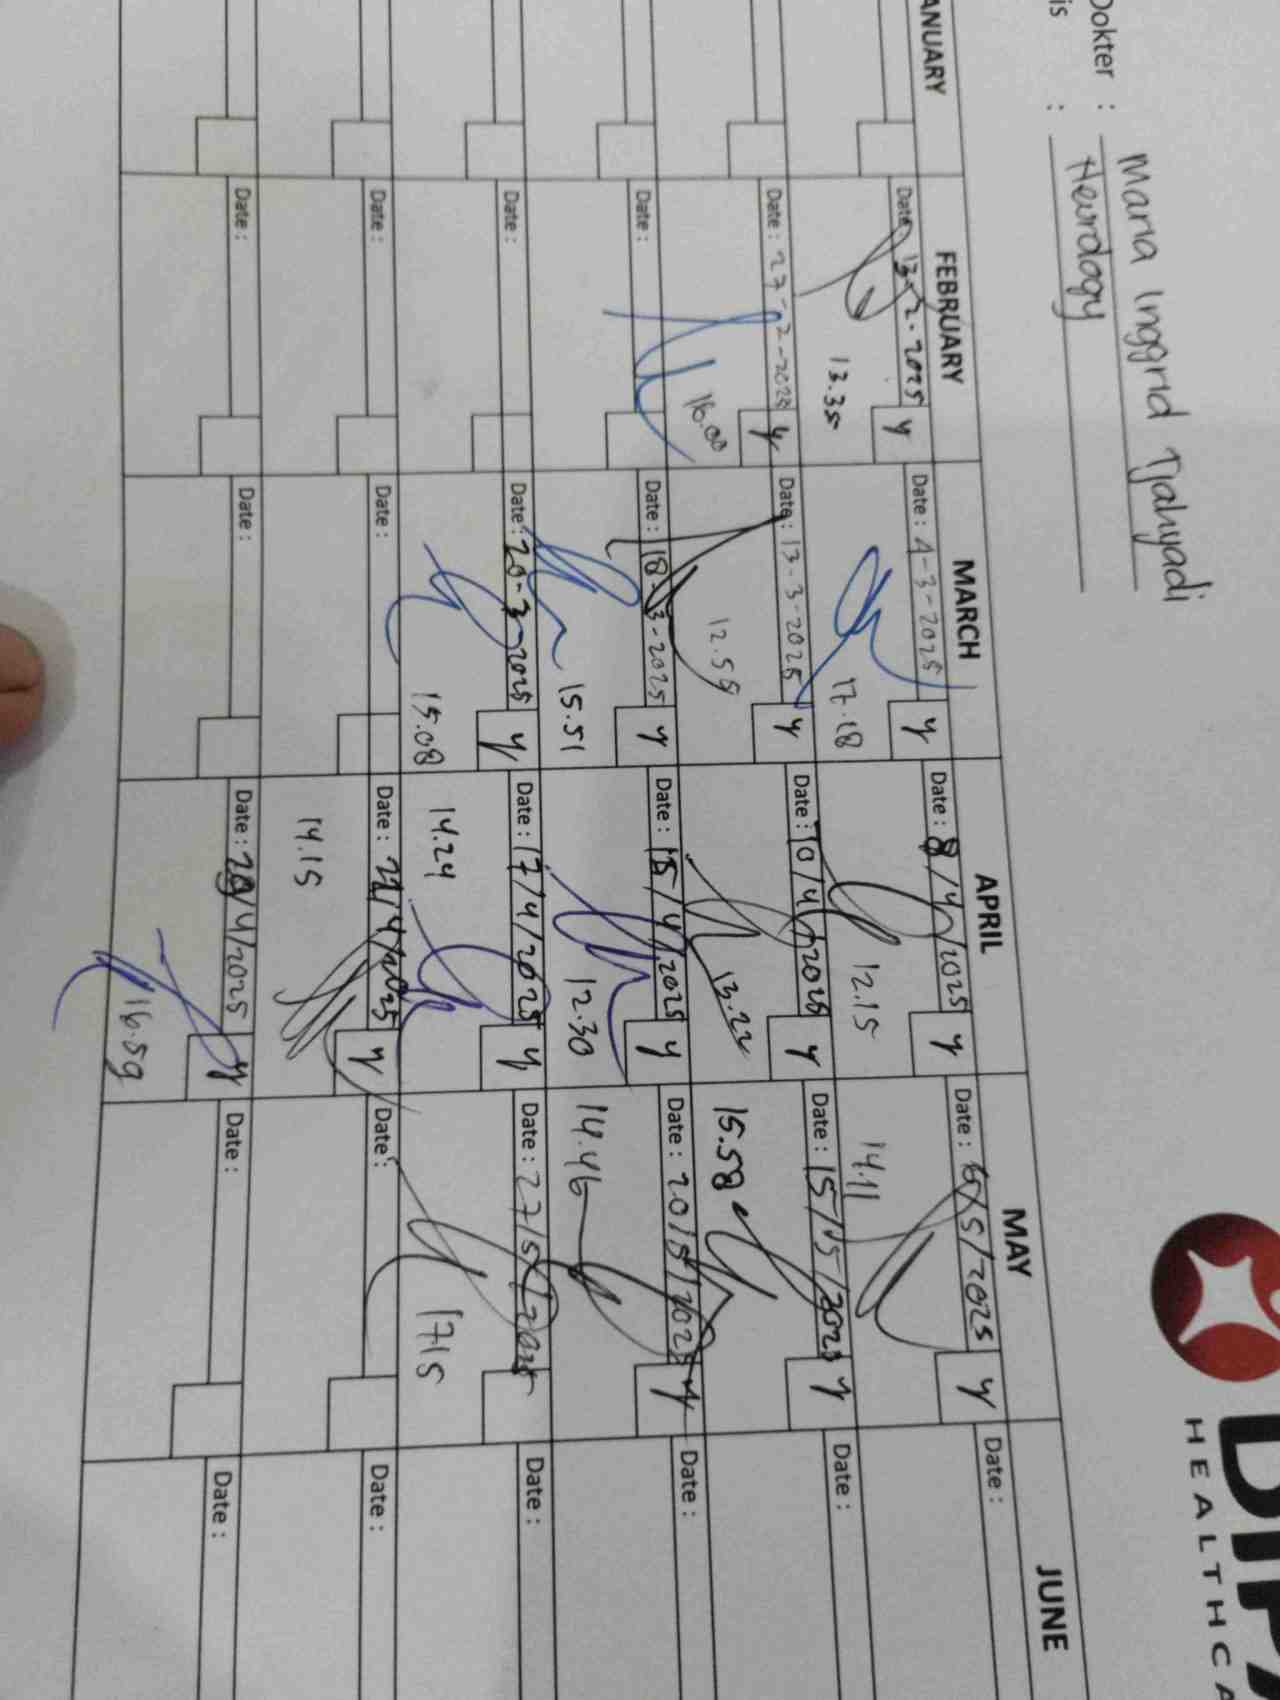 Dokter : Maria Inggrid Tjahyadi
is : Neurology
DIPA
HEALTHCA
ANUARY FEBRUARY MARCH APRIL MAY JUNE
Date: 13-2-2025 y Date: 4-3-2025 y Date: 8/4/2025 y Date: 6/5/2025 y Date:
13.35 17.18 12.15 14.11
Date: 27-2-2025 y Date: 13-3-2025 y Date: 10/4/2025 y Date: 15/5/2025 y Date:
16.00 12.55 13.22 15.58
Date: Date: 18-3-2025 y Date: 15/4/2025 y Date: 20/5/2025 y Date:
15.51 12.30 14.46
Date: Date: 20-3-2025 y Date: 17/4/2025 y Date: 27/5/2025 Date:
15.08 14.24 1715
Date: Date: Date: 22/4/2025 y Date: Date:
14.15
Date: Date: Date: 29/4/2025 y Date: Date:
16.59